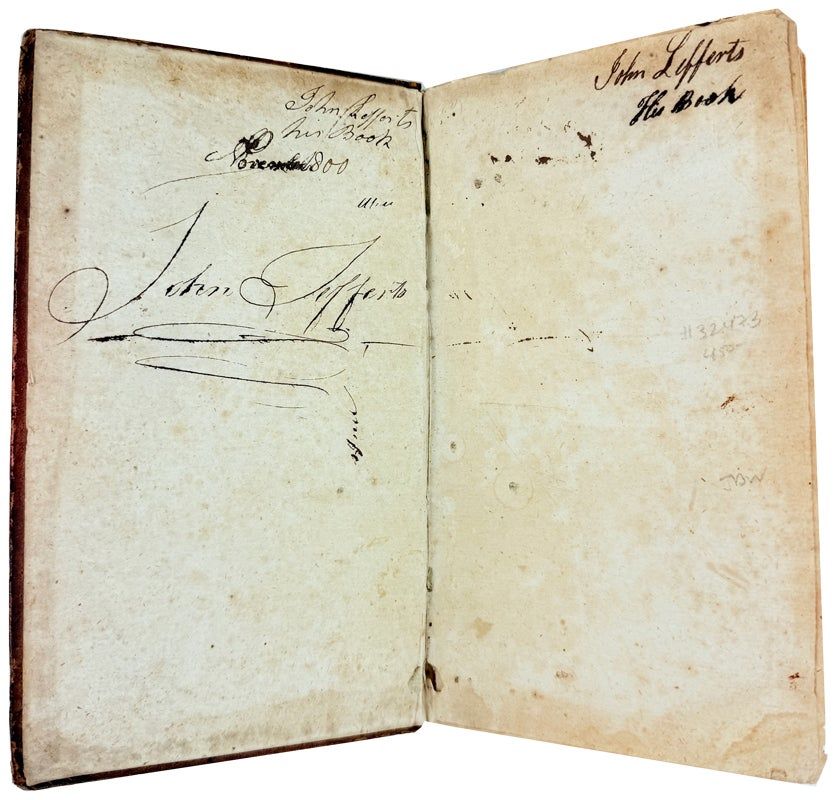 John Lefferts
his Book
November 1800
John Lefferts
John Lefferts
His Book
#32473
JBW